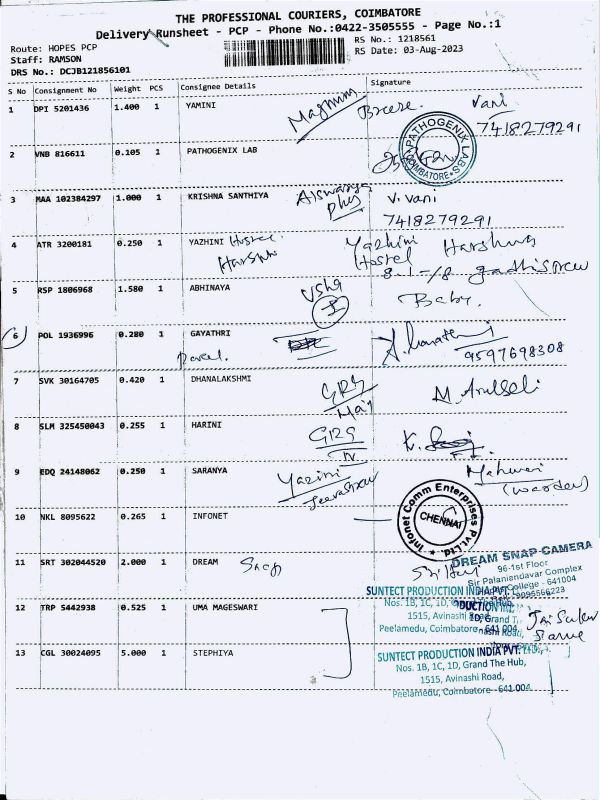 THE PROFESSIONAL COURIERS, COIMBATORE
Delivery Runsheet - PCP - Phone No.:0422-3505555 - Page No.:1
Route: HOPES PCP
RS No.: 1218561
Staff: RAMSON
RS Date: 03-Aug-2023
DRS No.: DCJB121856101
S No Consignment No Weight PCS Consignee Details Signature
1 DPI 5201436 1.400 1 YAMINI Magnum Breeze. Vani
7418279291
2 VNB 816611 0.105 1 PATHOGENIX LAB
PATHOGENIX LABS COIMBATORE
3 MAA 102384297 1.000 1 KRISHNA SANTHIYA Aiswarya Plus V. Vani
7418279291
4 ATR 3200181 0.250 1 YAZHINI Hostel Yazhini
Hostel
5 RSP 1806968 1.580 1 ABHINAYA Usha Baby.
6 POL 1936996 0.280 1 GAYATHRI
Parcel. 9597698308
7 SVK 30164705 0.420 1 DHANALAKSHMI GRG M. Arulseli
8 SLM 325450043 0.255 1 HARINI GRG K.
9 EDQ 24148062 0.250 1 SARANYA Yazini
(warden)
10 NKL 8095622 0.265 1 INFONET
Infonet Comm Enterprises Pvt.Ltd. CHENNAI
11 SRT 302044520 2.000 1 DREAM Snap
DREAM SNAP CAMERA
96-1st Floor
Sir Palaniendavar Complex
College - 641004
SUNTECT PRODUCTION INDIA PVT.
12 TRP 5442938 0.525 1 UMA MAGESWARI
Nos. 1B, 1C, 1D,
1515, Avinashi
Peelamedu, Coimbatore
13 CGL 30024095 5.000 1 STEPHIYA
SUNTECT PRODUCTION INDIA PVT. LTD.,
Nos. 1B, 1C, 1D, Grand The Hub,
1515, Avinashi Road,
Peelamedu, Coimbatore - 641 004